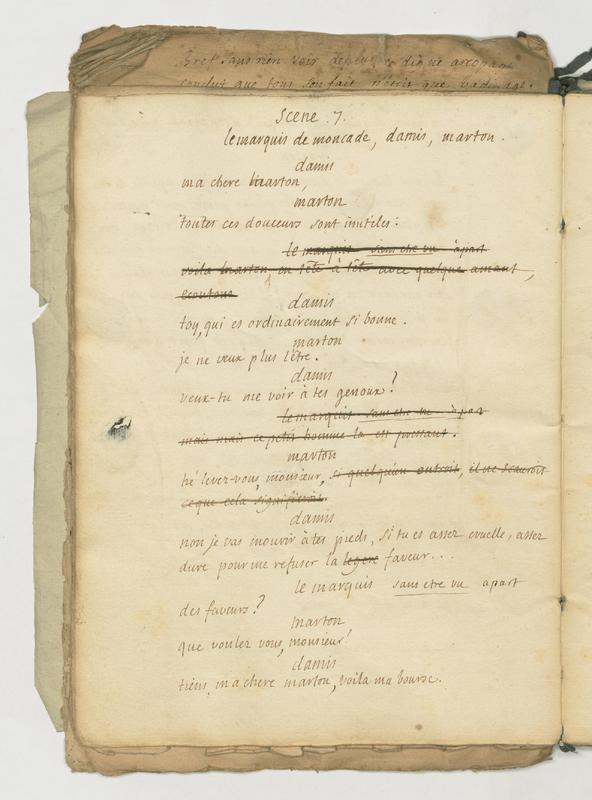 Bref sans rien voir
conclut que tout son fait n'étoit que badinage.
Scene 7.
le marquis de moncade, damis, marton.
damis
ma chere marton,
marton
toutes ces douceurs sont inutiles:
le marquis sans etre vu àpart
voila marton, en tête à tête avec quelque amant,
ecoutons
damis
toy, qui es ordinairement si bonne.
marton
je ne veux plus l'etre.
damis
veux-tu me voir à tes genoux?
le marquis sans etre vu àpar
mais mais ce petit homme la est pressant.
marton
hé levez-vous, monsieur, si quelqu'un entroit, il ne scauroit
ce que cela signifieroit.
damis
non je vas mourir à tes pieds, si tu es assez cruelle, assez
dure pour me refuser la legere faveur...
le marquis sans etre vu apart
des faveurs?
marton
que voulez vous, monsieur?
damis
tiens, ma chere marton, voila ma bourse.